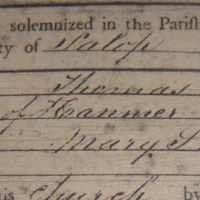 solemnized in the Parish
ty of Salop
Thomas
of Hanmer
Mary S
is Church by